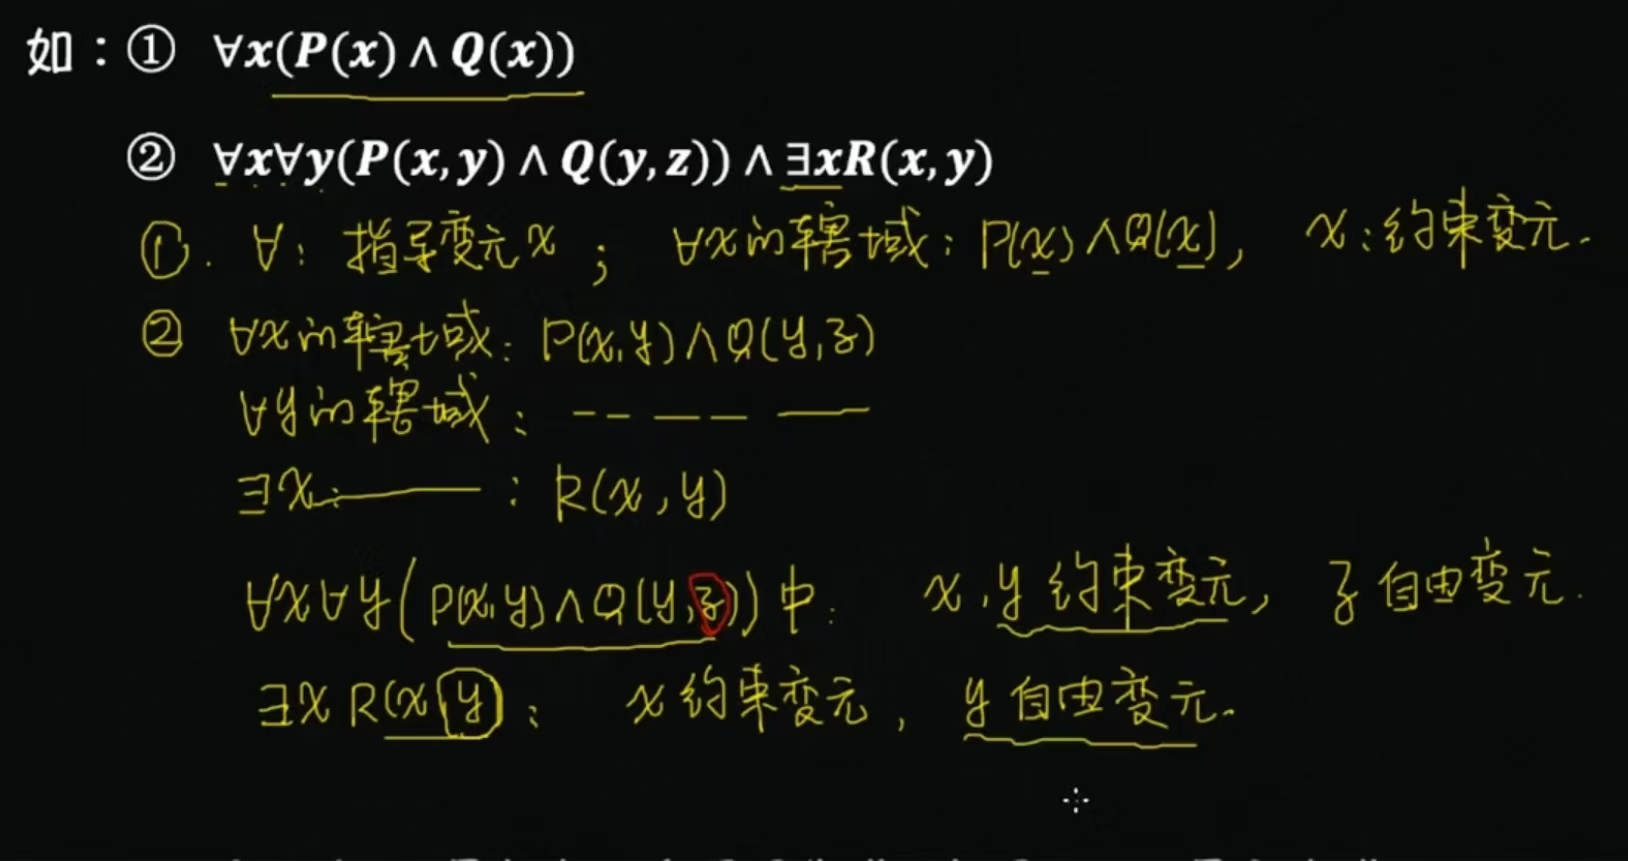 如：① ∀x(P(x)∧Q(x))
② ∀x∀y(P(x,y)∧Q(y,z))∧∃xR(x,y)
①. ∀: 指导变元x ; ∀x的辖域: P(x)∧Q(x), x:约束变元.
② ∀x的辖域: P(x,y)∧Q(y,z)
∀y的辖域: -- —— ——
∃x —— : R(x,y)
∀x∀y(P(x,y)∧Q(y,z))中: x,y约束变元, z自由变元.
∃xR(x,y): x约束变元, y自由变元.